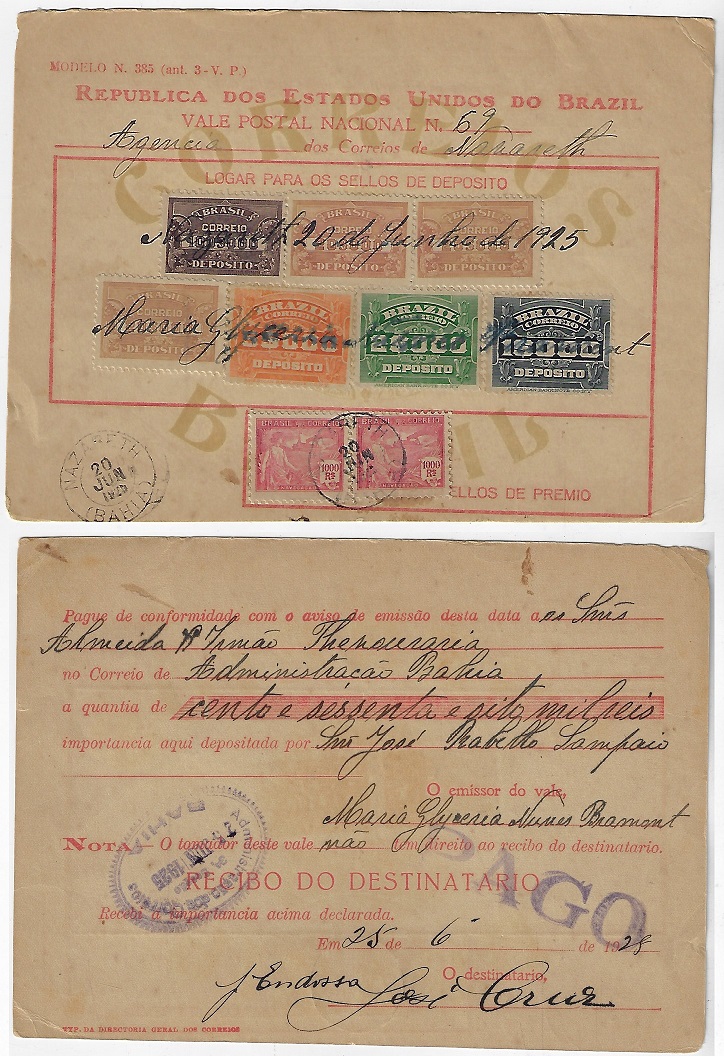 MODELO N. 385 (ant. 3-V. P.)
REPUBLICA DOS ESTADOS UNIDOS DO BRAZIL
VALE POSTAL NACIONAL N. 69
Agencia dos Correios de Nazareth
CORREIOS
LOGAR PARA OS SELLOS DE DEPOSITO
BRASIL BRASIL BRASIL
CORREIO CORREIO CORREIO
DEPOSITO DEPOSITO DEPOSITO
Nazareth 20 de Junho de 1925
BRASIL BRAZIL BRAZIL BRAZIL
CORREIO CORREIO CORREIO CORREIO
DEPOSITO DEPOSITO DEPOSITO DEPOSITO
Maria Glyceria Nunes Bramont
BRAZIL
BRASIL CORREIO BRASIL CORREIO
1000 Rs 1000 Rs
NAZARETH
20 JUN
20 JUN 1925
(BAHIA)
SELLOS DE PREMIO
Pague de conformidade com o aviso de emissão desta data a os Snrs
Almeida & Irmão Thesouraria
no Correio de Administração Bahia
a quantia de cento e sessenta e oito mil reis
importancia aqui depositada por Snr José Rabello Sampaio
O emissor do vale,
Maria Glyceria Nunes Bramont
NOTA — O tomador deste vale não tem direito ao recibo do destinatario.
BAHIA
PAGO
RECIBO DO DESTINATARIO
Recebi a importancia acima declarada.
Em 25 de 6 de 1925
O destinatario,
José Cruz
TYP. DA DIRECTORIA GERAL DOS CORREIOS